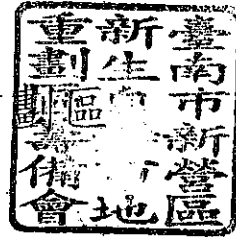 臺南市新營區
新生地
重劃區籌備會